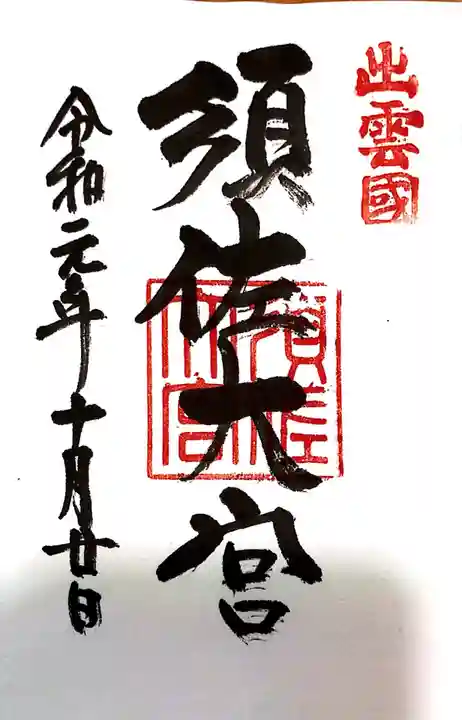 出雲國
須佐大宮
須佐
大宮
令和元年十月廿日